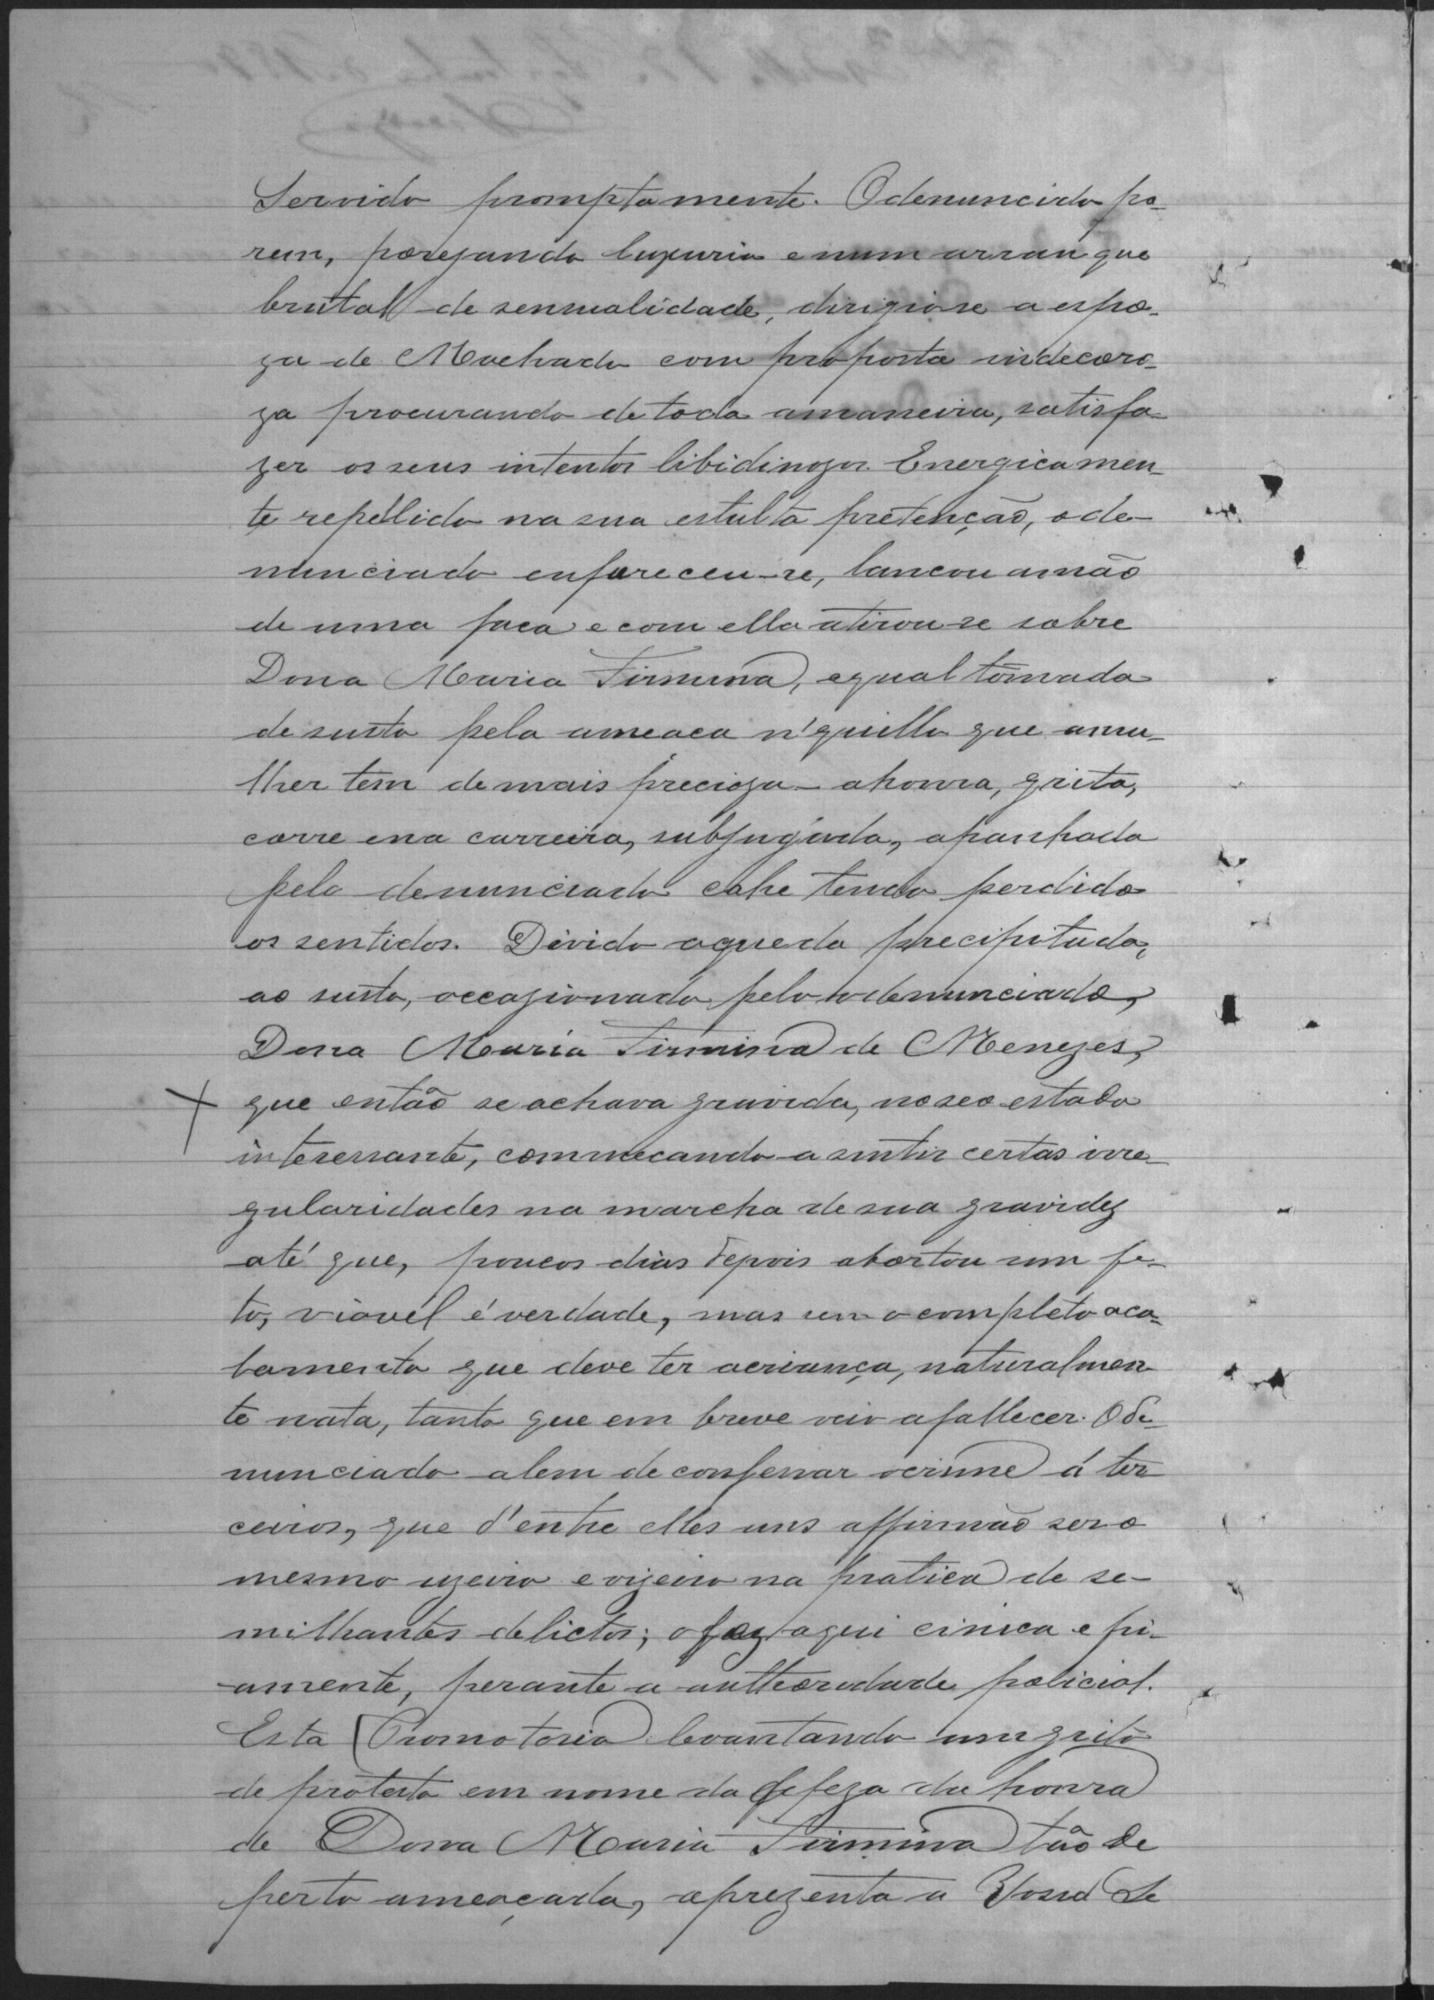 Servido promptamente. O denunciado po-
rem, porejando luxuria e num arranque
brutal de sensualidade, dirigio-se a espo-
za de Machado com proposta indecoro-
za procurando de toda a maneira, satisfa-
zer os seus intentos libidinozos. Energicamen-
te repellido na sua estulta pretenção, o de-
nunciado enfureceu-se, lançou a mão
de uma faca e com ella atirou-se sobre
Dona Maria Firmina, a qual tomada
de susto pela ameaca n'quillo que a mu-
lher tem de mais precioza - a honra, grita,
corre e na carreira, subjugada, apanhada
pelo denunciado cahe tendo perdido
os sentidos. Divido a queda precipitada,
ao susto, occazionado pelo o denunciado,
Dona Maria Firmina de Menezes,
que então se achava gravida, no seo estado
interessante, commecando a sentir certas irre-
gularidades na marcha de sua gravidez
até que, poucos dias depois abortou um fe-
to, viavel é verdade, mas sem o completo aca-
bamento que deve ter a criança, naturalmen
te nata, tanto que em breve veio a fallecer. O de-
nunciado alem de confessar o crime á ter-
ceiros, que d'entre elles uns affirmão ser o
mesmo uzeiro e vizeiro na pratica de se-
milhantes delictos; o faz aqui cinica e fri-
amente, perante a authoridade policial.
Esta Promotoria levantando um grito
de protesto em nome da defeza da honra
de Dona Maria Firmina tão de
perto ameaçada, aprezenta a Vossa Se